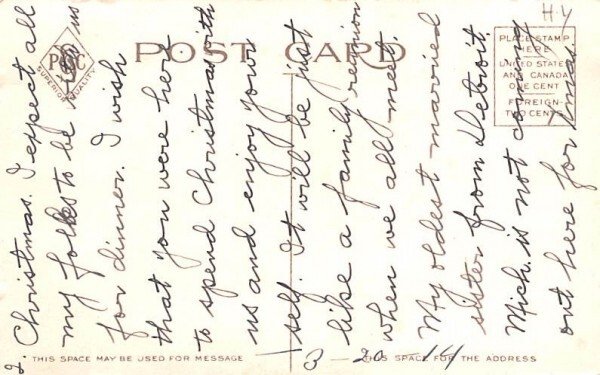 POST CARD
P S C
SUPERIOR QUALITY
PLACE STAMP
HERE
UNITED STATES
AND CANADA
ONE CENT
FOREIGN-
TWO CENTS
H-Y
2. Christmas. I expect all
my folks to be with us
for dinner. I wish
that you were here
to spend Christmas with
us and enjoy your
self. It will be just
like a family reunion
when we all meet.
My oldest married
sister from Detroit,
Mich. is not coming
out here for Xmas.
THIS SPACE MAY BE USED FOR MESSAGE
THIS SPACE FOR THE ADDRESS